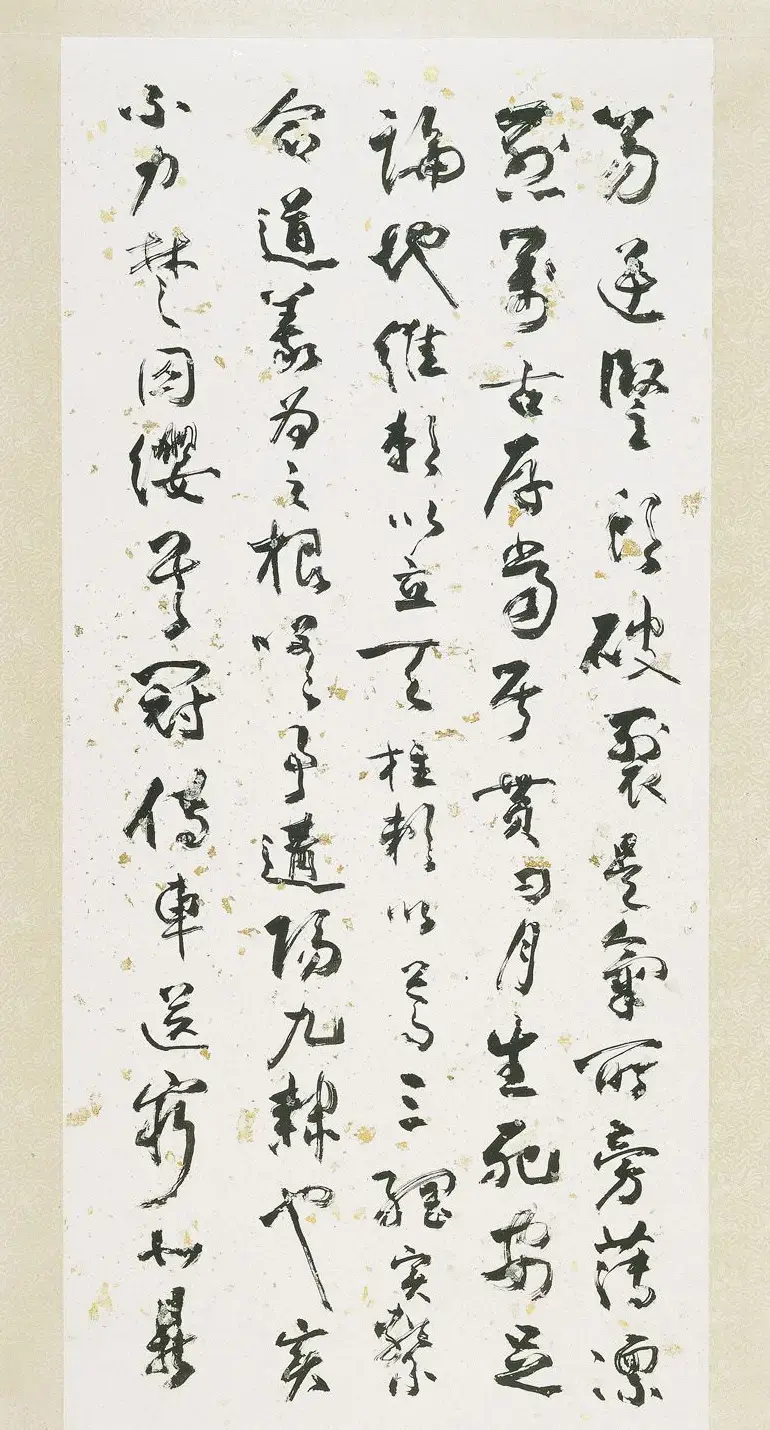 笏逆豎頭破裂是氣所旁薄凜
烈萬古存當其貫日月生死安足
論地維賴以立天柱賴以尊三綱實繫
命道義為之根嗟予遘陽九隸也實
不力楚囚纓其冠傳車送窮北鼎